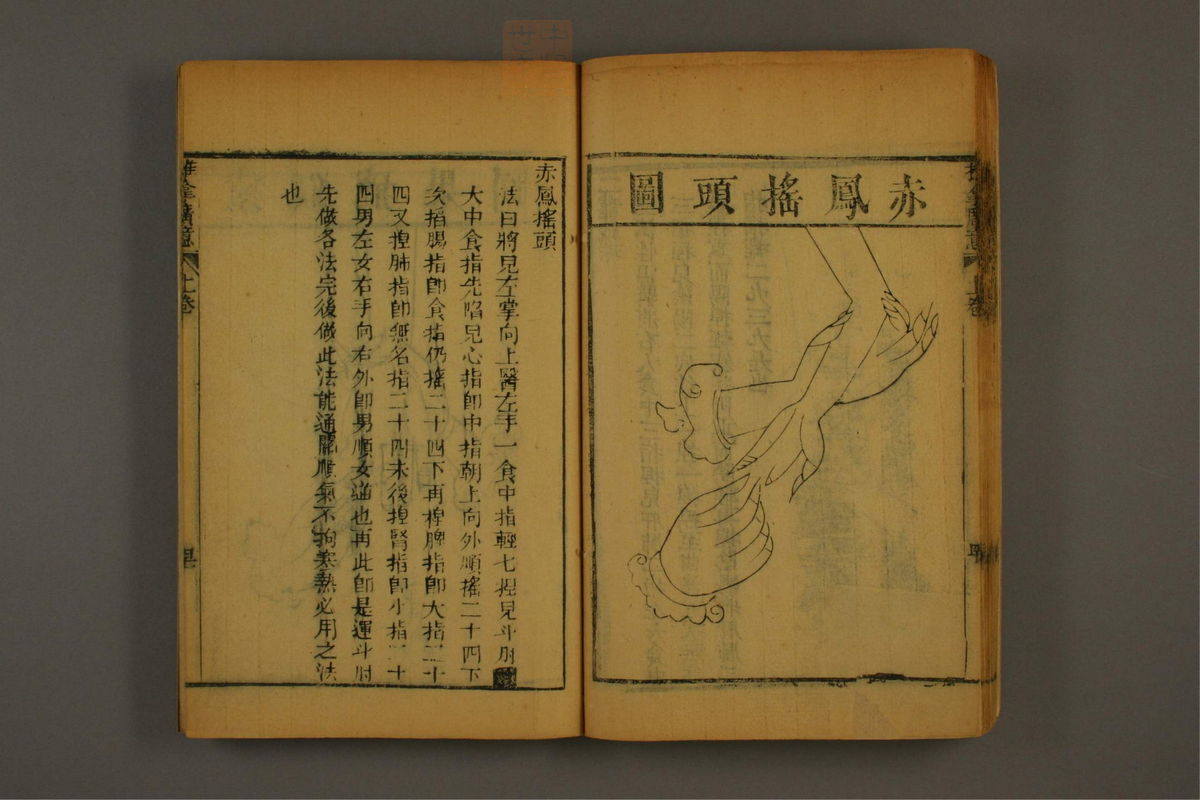 赤鳳搖頭圖
推拿廣意
上卷
赤鳳搖頭
法曰將兒左掌向上醫左手一食中指輕七揑兒斗肘
大中食指先陷兒心指卽中指朝上向外順搖二十四下
次揑腸指卽食指仍搖二十四下再揑脾指卽大指二十
四又揑肺指卽無名指二十四末後揑腎指卽小指二十
四男左女右手向右外卽男順女逆也再此卽是運斗肘
先做各法完後做此法能通關順氣不拘寒熱必用之法
也
推拿廣意
上卷